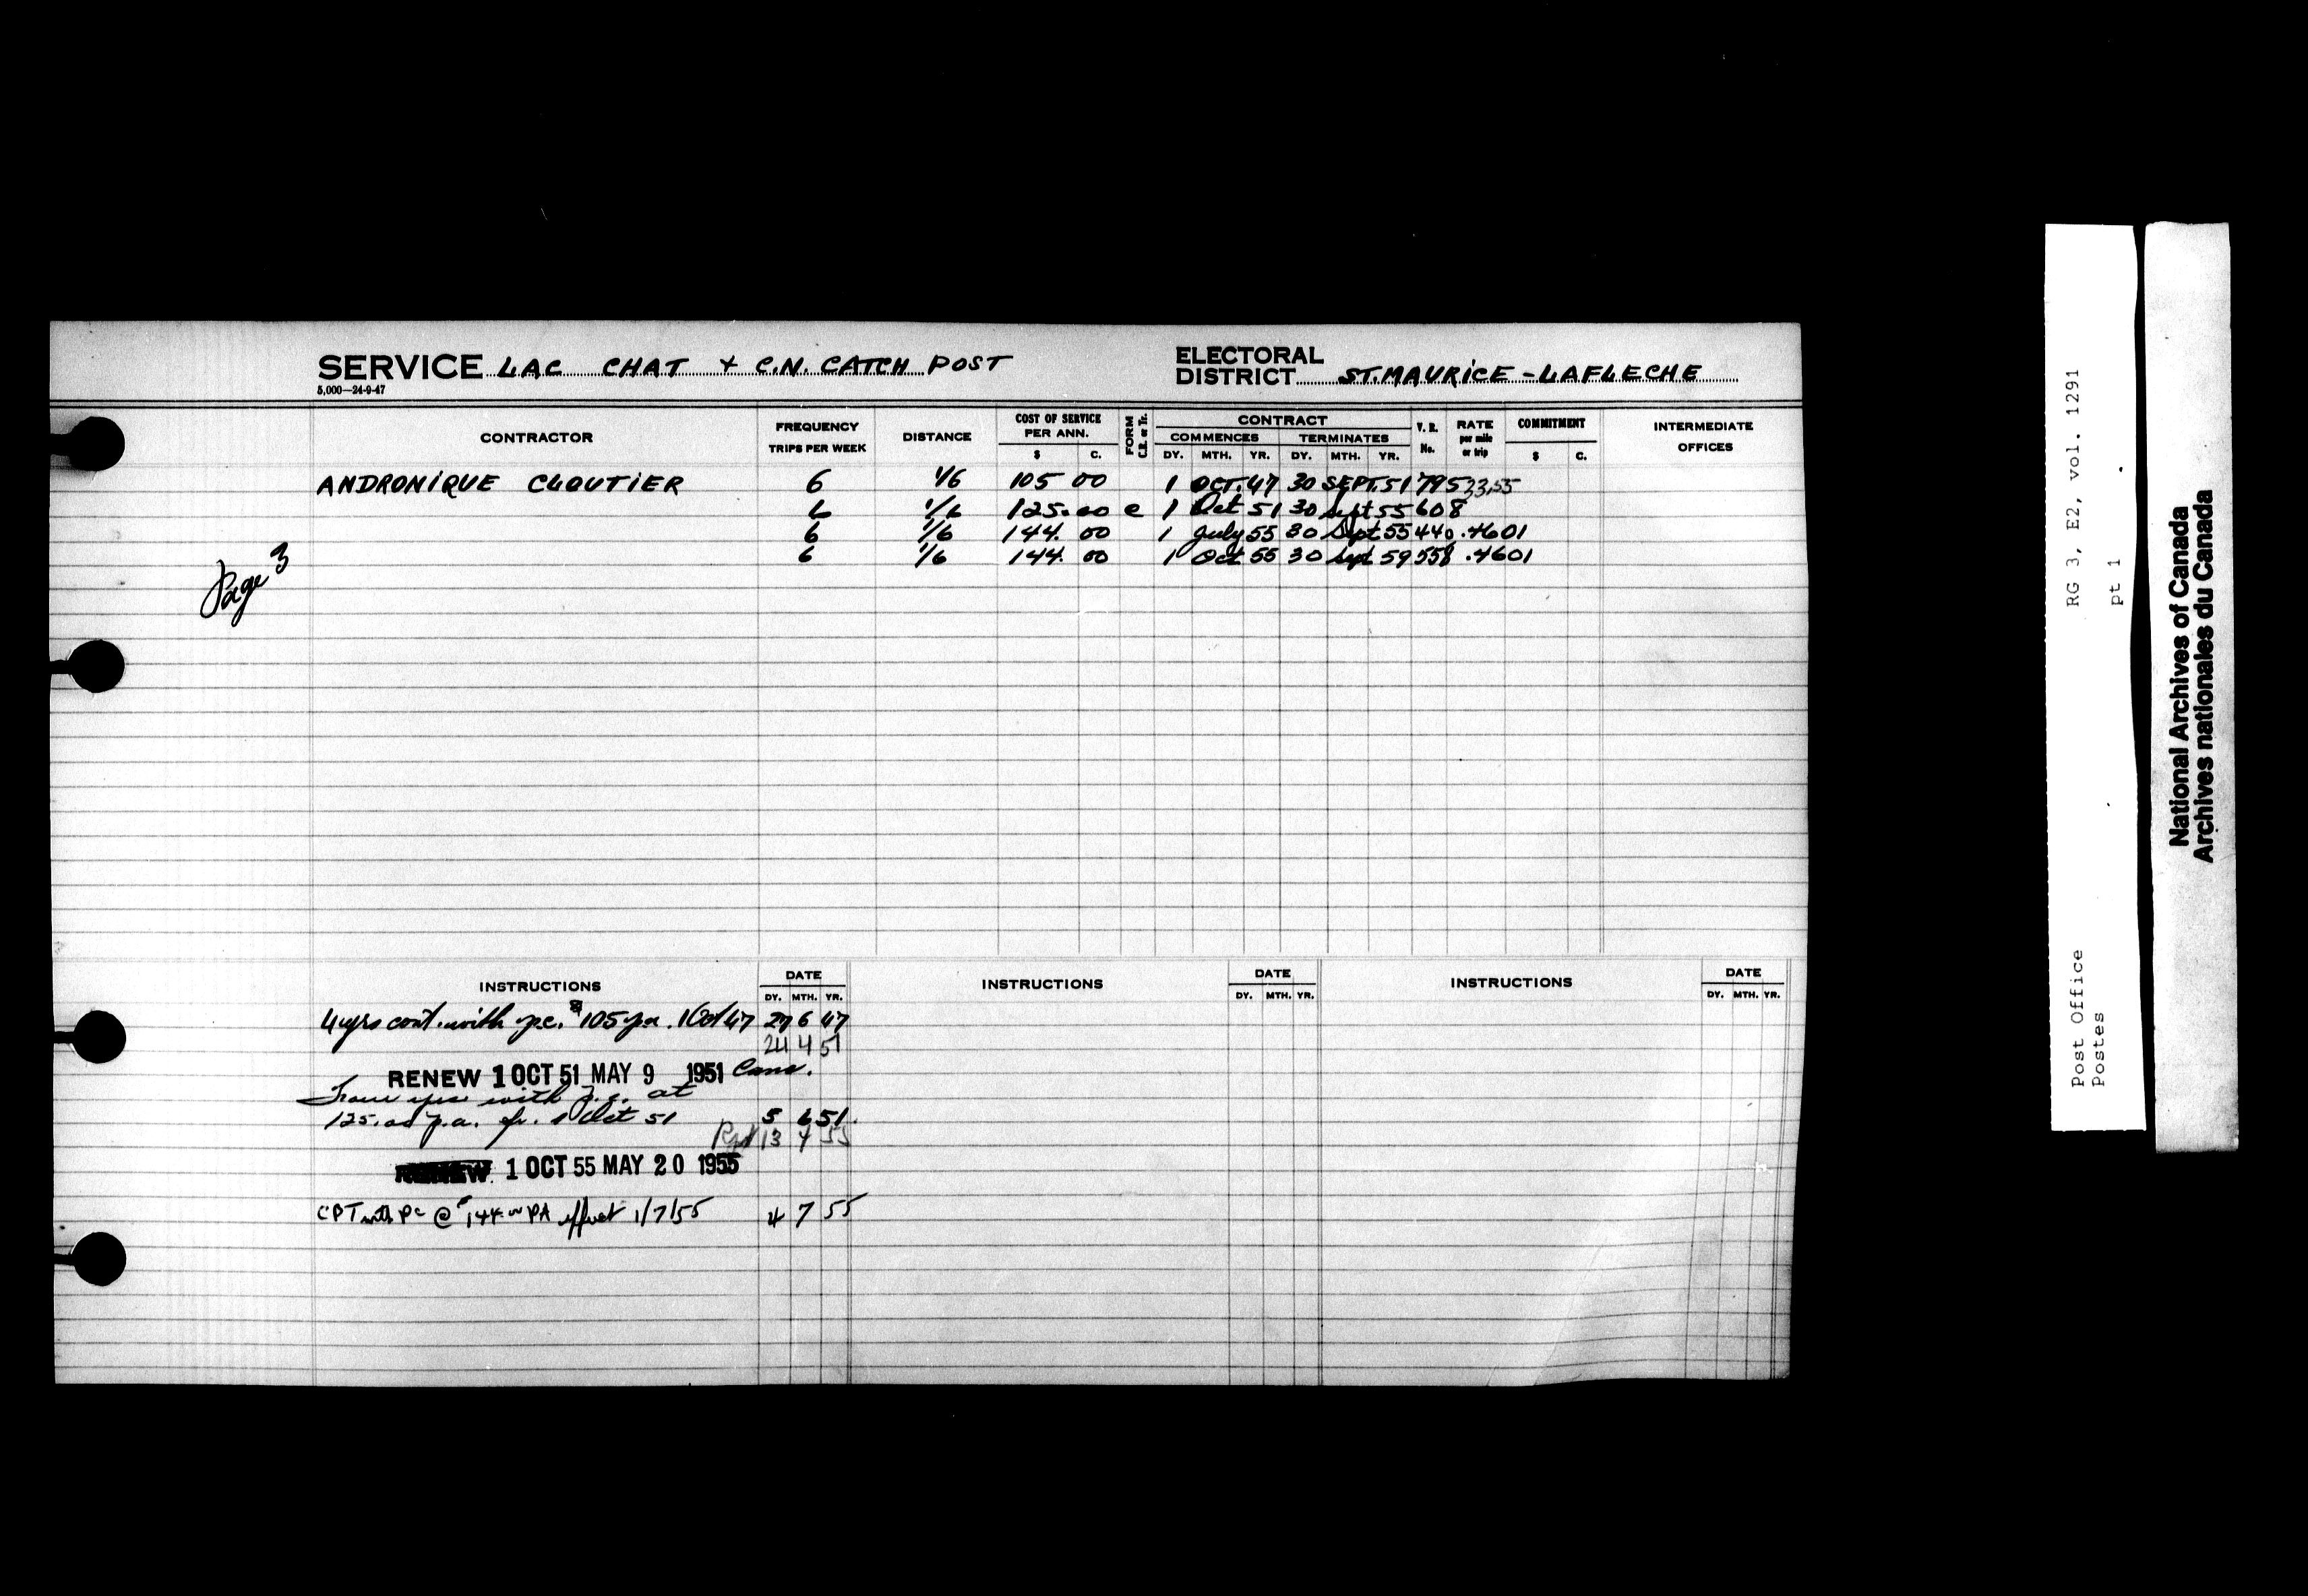 SERVICE LAC CHAT + C.N. CATCH POST
5,000—24-9-47
ELECTORAL DISTRICT ST. MAURICE - LAFLECHE
CONTRACTOR FREQUENCY TRIPS PER WEEK DISTANCE COST OF SERVICE PER ANN. $ C. FORM C.R. or Tr. CONTRACT COMMENCES DY. MTH. YR. TERMINATES DY. MTH. YR. V. R. No. RATE per mile or trip COMMITMENT $ C. INTERMEDIATE OFFICES
ANDRONIQUE CLOUTIER 6 1/6 105 00 1 OCT. 47 30 SEPT. 51 795
6 1/6 125.00 e 1 Oct 51 30 Sept 55 608
6 1/6 144. 00 1 July 55 30 Sept 55 440 .4601
6 1/6 144. 00 1 Oct 55 30 Sept 59 558 .4601
Page 3
INSTRUCTIONS DATE DY. MTH. YR. INSTRUCTIONS DATE DY. MTH. YR. INSTRUCTIONS DATE DY. MTH. YR.
4 yrs cont. with p.c. $105 pa. 1 Oct 47 27 6 47
24 4 51
RENEW 1 OCT 51 MAY 9 1951
Four yrs with p.c. at
125.00 p.a. fr. 1 Oct 51 5 6 51.
13 4 55
RENEW 1 OCT 55 MAY 20 1955
CPT with PC @ $144.00 PA effect 1/7/55 4 7 55
Post Office
Postes
RG 3, E2, vol. 1291
pt 1
National Archives of Canada
Archives nationales du Canada